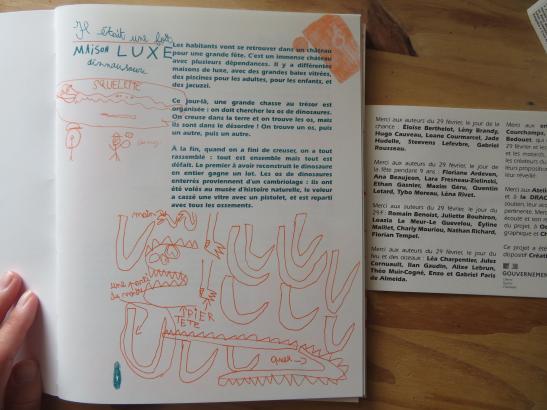 Il était une fois
MAISON LUXE
dinnausaure
SQUELETTE
Les habitants vont se retrouver dans un château
pour une grande fête. C'est un immense château
avec plusieurs dépendances. Il y a différentes
maisons de luxe, avec des grandes baies vitrées,
des piscines pour les adultes, pour les enfants, et
des jacuzzi.
Ce jour-là, une grande chasse au trésor est
organisée : on doit chercher les os de dinosaures.
On creuse dans la terre et on trouve les os, mais
ils sont dans le désordre ! On trouve un os, puis
un autre, puis un autre.
À la fin, quand on a fini de creuser, on a tout
rassemblé : tout est ensemble mais tout est
défait. Le premier à avoir reconstruit le dinosaure
en entier gagne un lot. Les os de dinosaures
enterrés proviennent d'un cambriolage : ils ont
été volés au musée d'histoire naturelle, le voleur
a cassé une vitre avec un pistolet, et est reparti
avec tous les ossements.
TRIER
TETE
Merci aux auteurs du 29 février, le jour de la
chance : Éloïse Berthelot, Lény Brandy,
Hugo Cauveau, Leane Courmarcel, Jade
Hudelle, Steevens Lefevbre, Gabriel
Rousseau.
Merci aux auteurs du 29 février, le jour de
la fête pendant 9 ans : Floriane Ardeven,
Ana Beaujean, Lara Fresneau-Zielinski,
Ethan Gasnier, Maxim Géru, Quentin
Letard, Tybo Moreau, Léna Rivet.
Merci aux auteurs du 29 février, le jour du
29 : Romain Benoist, Juliette Bouhiron,
Loazia Le Meur-Le Guevelou, Eyline
Maillet, Charly Mouriou, Nathan Richard,
Florian Tempel.
Merci aux auteurs du 29 février, le jour du
feu et des oiseaux : Léa Charpentier, Jules
Cornuault, Ilan Gaudin, Alixe Lebrun,
Théo Muir-Cogné, Enzo et Gabriel Paris
de Almeida.
Merci aux
Courchamps,
Bedouet, qui
29 février et les
et les materiels,
les créateurs du
leurs propositions
leur réveillé.
Merci aux
à la DRAC
soutien, leur
Merci
écoute et son
du projet, à
graphique et
Ce projet a été
dispositif Créati
GOUVERNEMENT